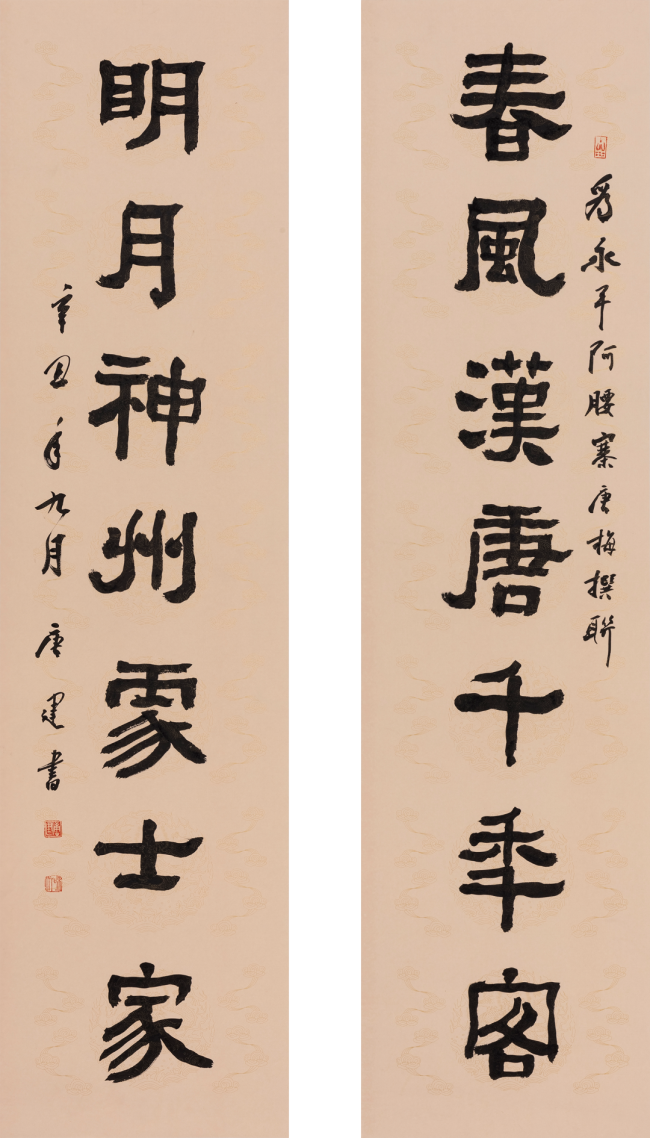 爲永平阿腰寨唐梅撰聯
春風漢唐千秊客
明月神州處士家
辛丑年九月唐建書